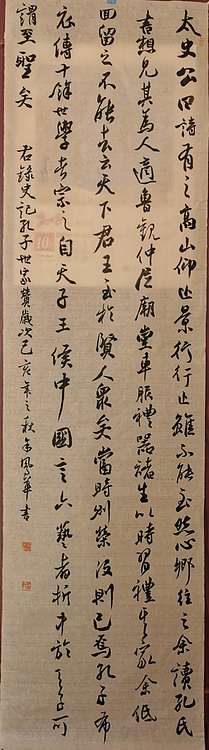 太史公曰詩有之高山仰止景行行止雖不能至然心鄉往之余讀孔氏
書想見其為人適魯觀仲尼廟堂車服禮器諸生以時習禮其家余低
回留之不能去云天下君王至於賢人眾矣當時則榮沒則已焉孔子布
衣傳十餘世學者宗之自天子王侯中國言六藝者折中於夫子可
謂至聖矣
右錄史記孔子世家贊歲次己亥年之秋 鳳華書